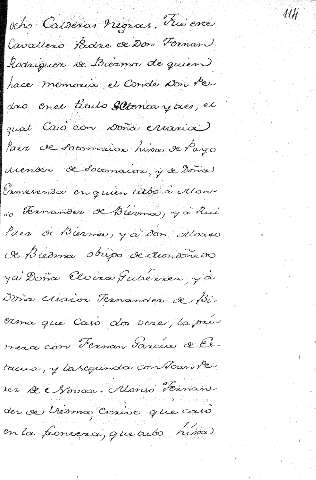 114
ocho Calderas Negras. Fue este
Cavallero Padre de Don Fernan
Rodriguez de Biedma de quien
hace memoria el Conde Don Pe-
dro en el titulo setenta y tres, el
qual Casó con Doña Maria
Paez de Sotomaior hixa de Payo
Mendez de Sotomaior, y de Doña
Ermesenda en quien tubo á Alon-
so Fernandez de Biedma, y á Rui
Paez de Biedma, y á Don Alonso
de Biedma obispo de Mondoñedo
y á Doña Elvira Gutierrez, y á
Doña Maior Fernandez de Bi-
edma que Casó dos veces, la pri-
mera con Fernan Garcia de
y la segunda con Juan Pe-
rez de Novoa. Alonso Fernan-
dez de Viedma, que casó
en la frontera, que tubo hixa